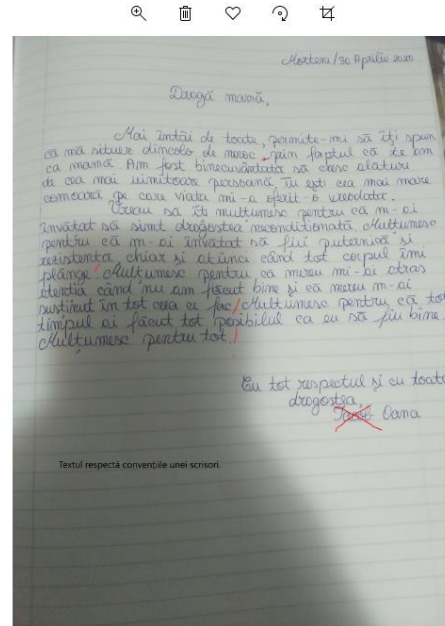 Morteni/30 Aprilie 2020
Dragă mamă,
Mai întâi de toate, permite-mi să îți spun
că mă situez dincolo de noroc, prin faptul că te am
ca mamă. Am fost binecuvântată să cresc alături
de cea mai uimitoare persoană. Tu ești cea mai mare
comoară pe care viata mi-a oferit-o vreodata.
Vreau să îti multumesc pentru că m-ai
învătat să simt dragostea neconditionată. Multumesc
pentru că m-ai învătat să fiu puternică si
rezistentă, chiar si atunci când tot corpul îmi
plânge! Multumesc pentru că mereu mi-ai atras
atentia când nu am făcut bine si că mereu m-ai
sustinut în tot ceea ce fac! Multumesc pentru că tot
timpul ai făcut tot posibilul ca eu să fiu bine.
Mulțumesc pentru tot!
Cu tot respectul și cu toată
dragostea,
Iacob Oana
Textul respectă convențiile unei scrisori.